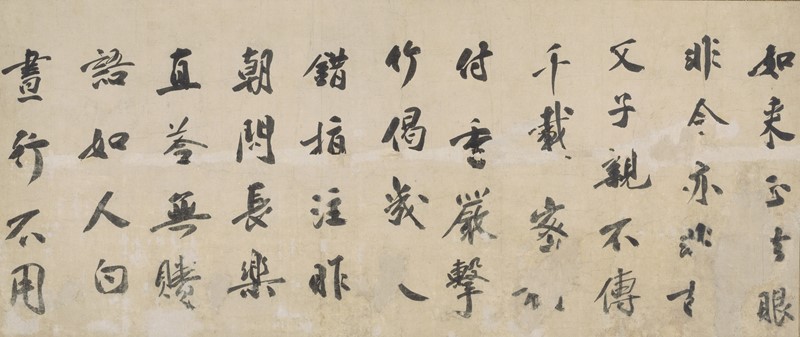 如来正法眼
非今亦非古
父子親不傳
千載密相
付香嚴擊
竹偈幾人
錯指注昨
朝問長樂
直荅無賸
語如人白
晝行不用